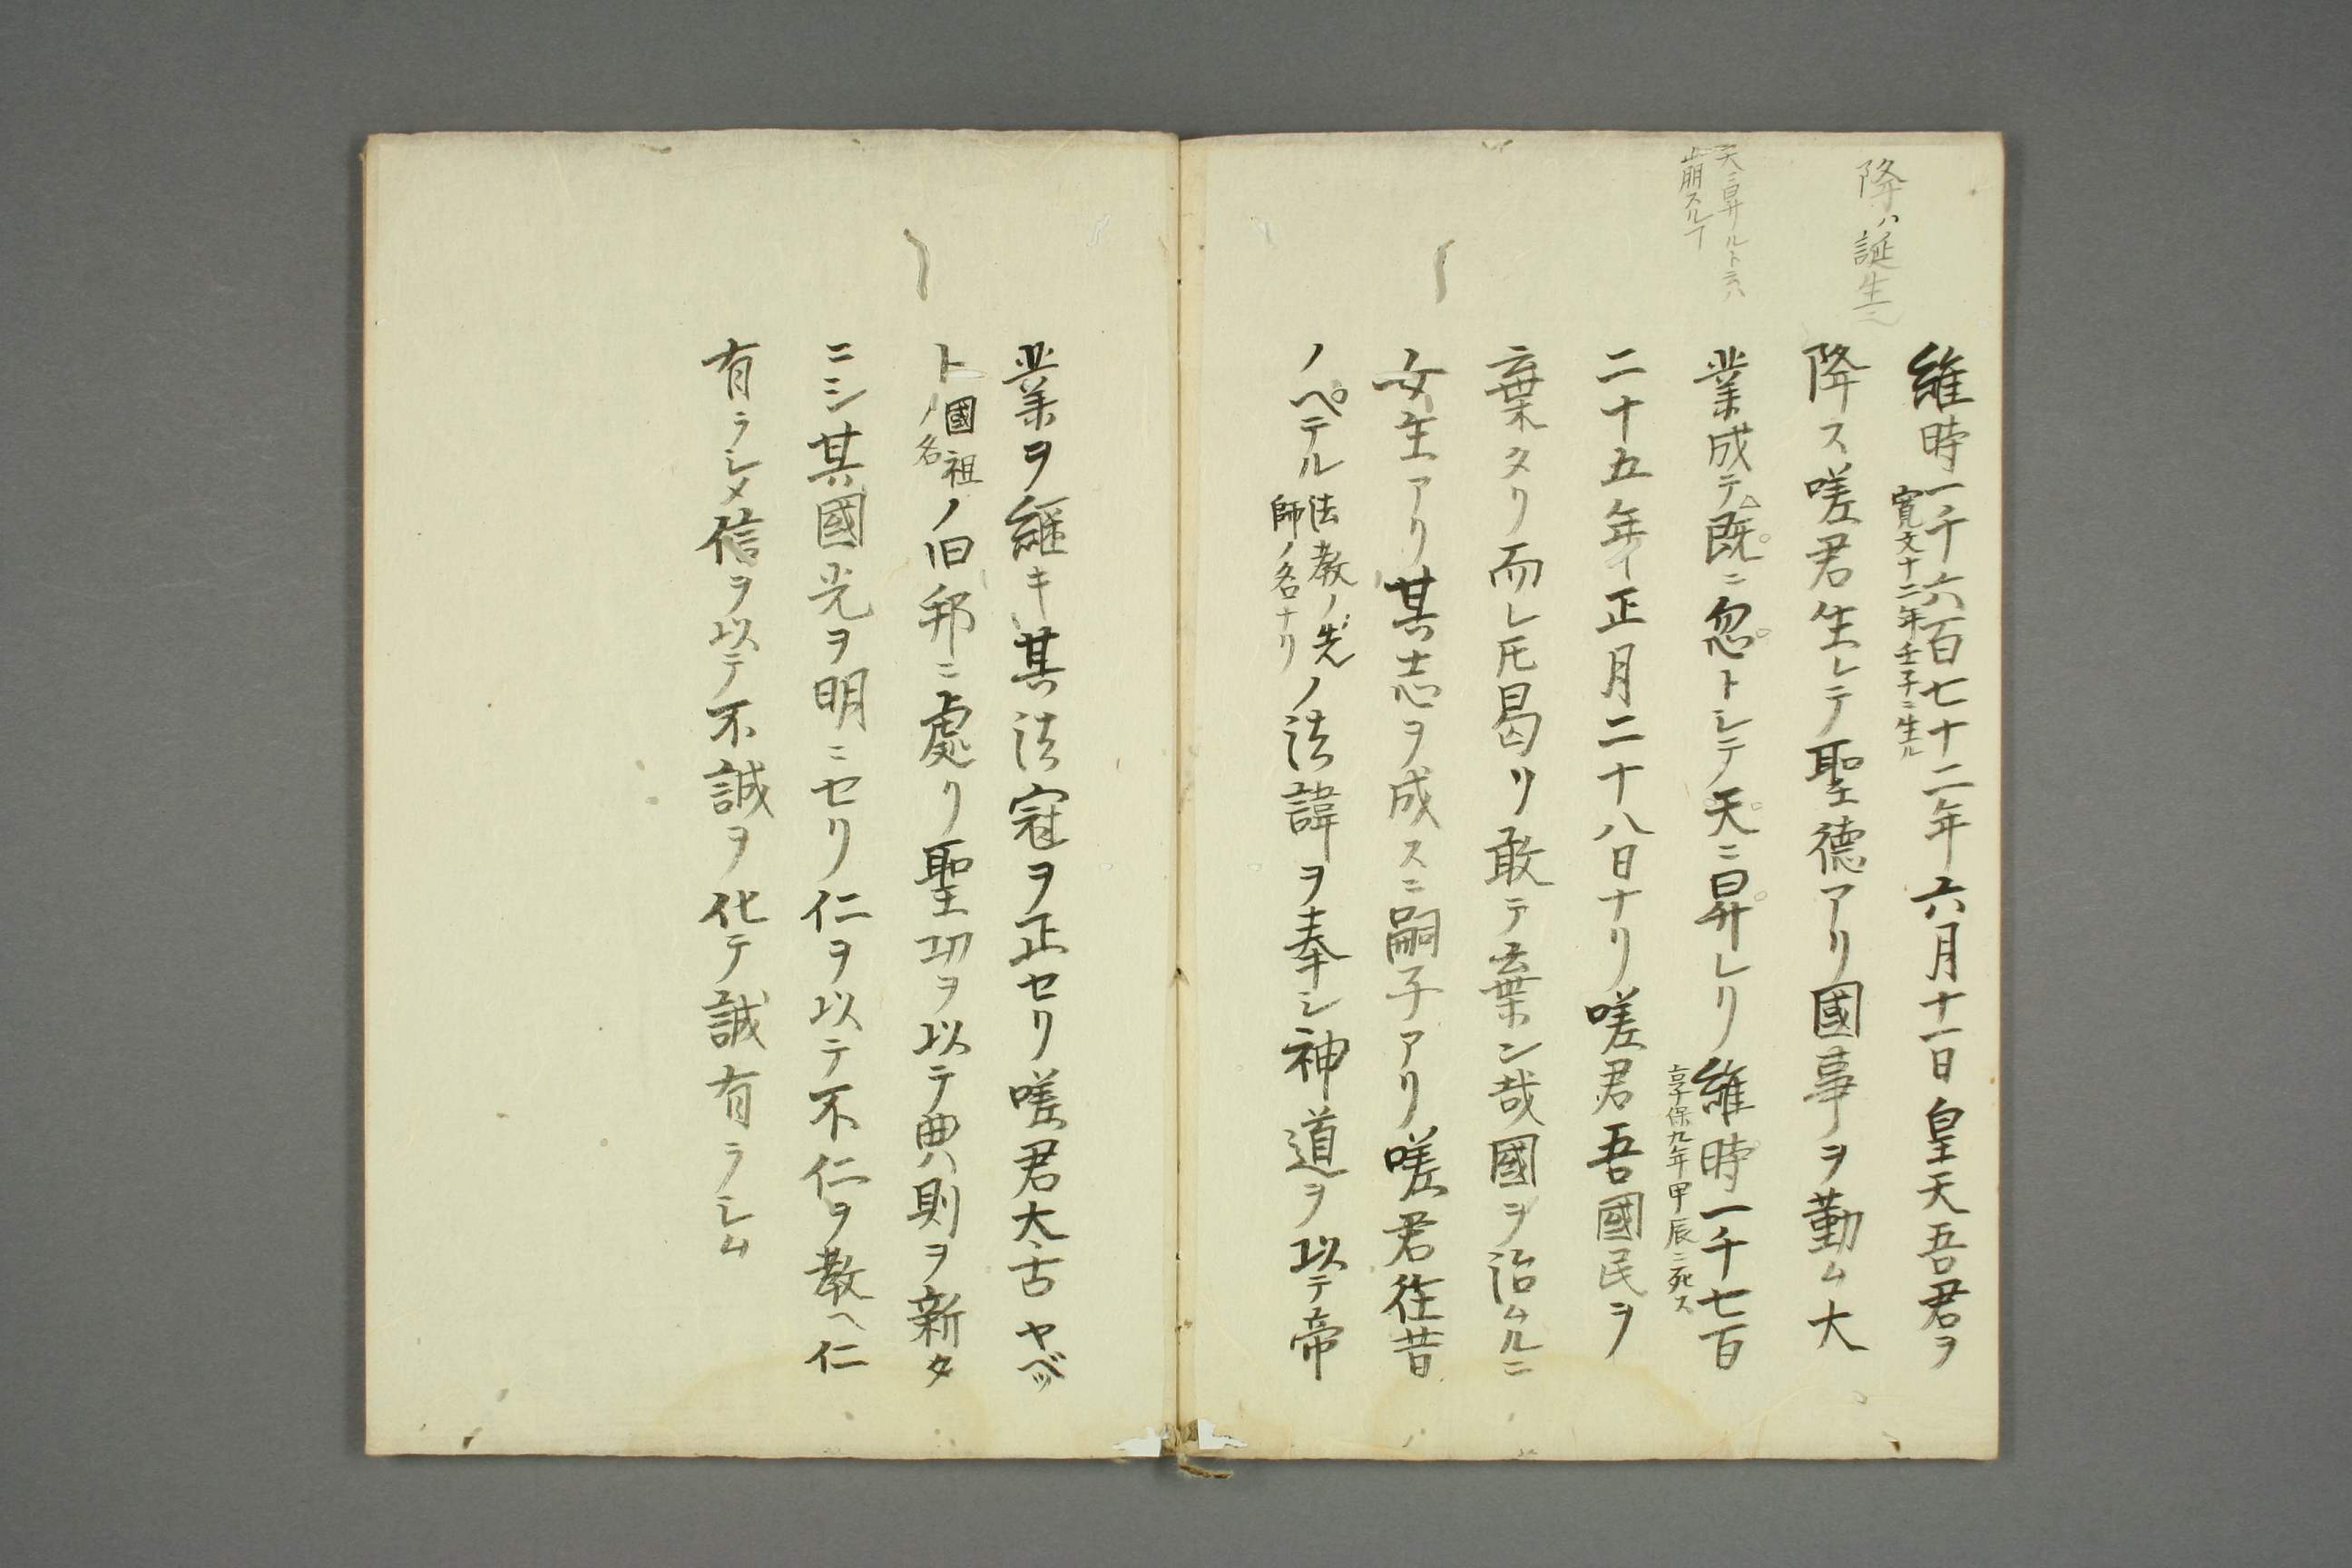 降ハ誕生也
天ニ昇ルト云ハ
崩スルヿ
維時一千六百七十二年六月十一日皇天吾君ヲ
寛文十二年壬子ニ生ル
降ス嗟君生レテ聖德アリ國事ヲ勤ム大
業成テ既ニ忽トシテ天ニ昇レリ維時一千七百
享保九年甲辰ニ死ス
二十五年正月二十八日ナリ嗟君吾國民ヲ
棄タリ而レ𪜈曷リ敢テ棄ン哉國ヲ治ムルニ
女主アリ其志ヲ成スニ嗣子アリ嗟君往昔
ノペテル法教ノ先
師ノ名ナリノ法諱ヲ奉シ神道ヲ以テ帝
業ヲ継キ其法冠ヲ正セリ嗟君太古ヤベッ
ト國祖
ノ名ノ旧邦ニ處リ聖功ヲ以テ典則ヲ新タ
ニシ其國光ヲ明ニセリ仁ヲ以テ不仁ヲ教ヘ仁
有ラシメ信ヲ以テ不誠ヲ化テ誠有ラシム